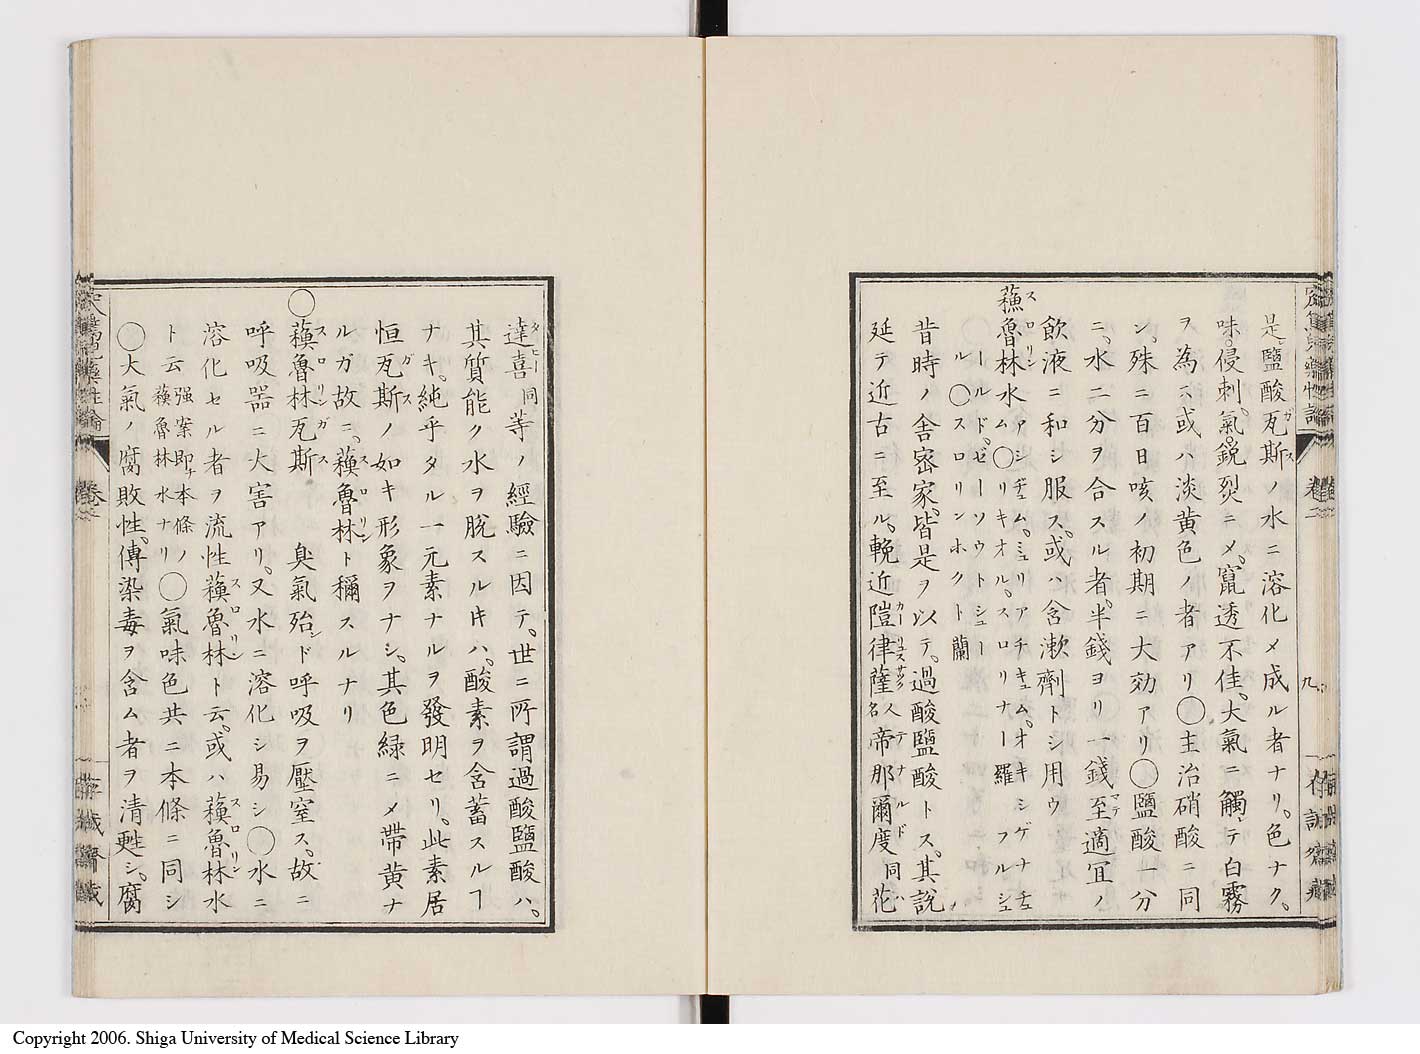 是鹽酸瓦斯ノ水ニ溶化メ成ル者ナリ。色ナク。
味。侵刺。氣。鋭烈ニメ。竄透不佳。大氣ニ觸テ白霧
ヲ為ス。或ハ淡黄色ノ者アリ〇主治硝酸ニ同
シ。殊ニ百日咳ノ初期ニ大効アリ〇鹽酸一分
ニ。水二分ヲ合スル者。半錢ヨリ一錢至適宜ノ
飲液ニ和シ服ス。或ハ含漱劑トシ用ウ
蘓魯林水
ム〇リキオル。スロリナー羅 フルシュ
ールドゼーソウトシュー
ル〇スロリンホクト蘭
昔時ノ舎宻家。皆是ヲ以テ。過酸鹽酸トス。其説
延テ近古ニ至ル。輓近隑律薩人名帝那爾度同花
卷二
九
達喜同等ノ經驗ニ因テ。世ニ所謂過酸鹽酸ハ。
其質能ク水ヲ脱スルキハ。酸素ヲ含蓄スルヿ
ナキ。純乎タル一元素ナルヲ發明セリ。此素居
恒瓦斯ノ如キ形象ヲナシ。其色緑ニメ帯黄ナ
ルガ故ニ。蘓魯林ト稱スルナリ
〇蘓魯林瓦斯 臭氣殆ド呼吸ヲ壓窒ス。故ニ
呼吸器ニ大害アリ。又水ニ溶化シ易シ〇水ニ
溶化セル者ヲ流性蘓魯林ト云。或ハ蘓魯林水
ト云 强案即チ本條ノ蘓魯林水ナリ〇氣味色共ニ本條ニ同シ
〇大氣ノ腐敗性。傳染毒ヲ含ム者ヲ清甦シ。腐
Copyright 2006. Shiga University of Medical Science Library